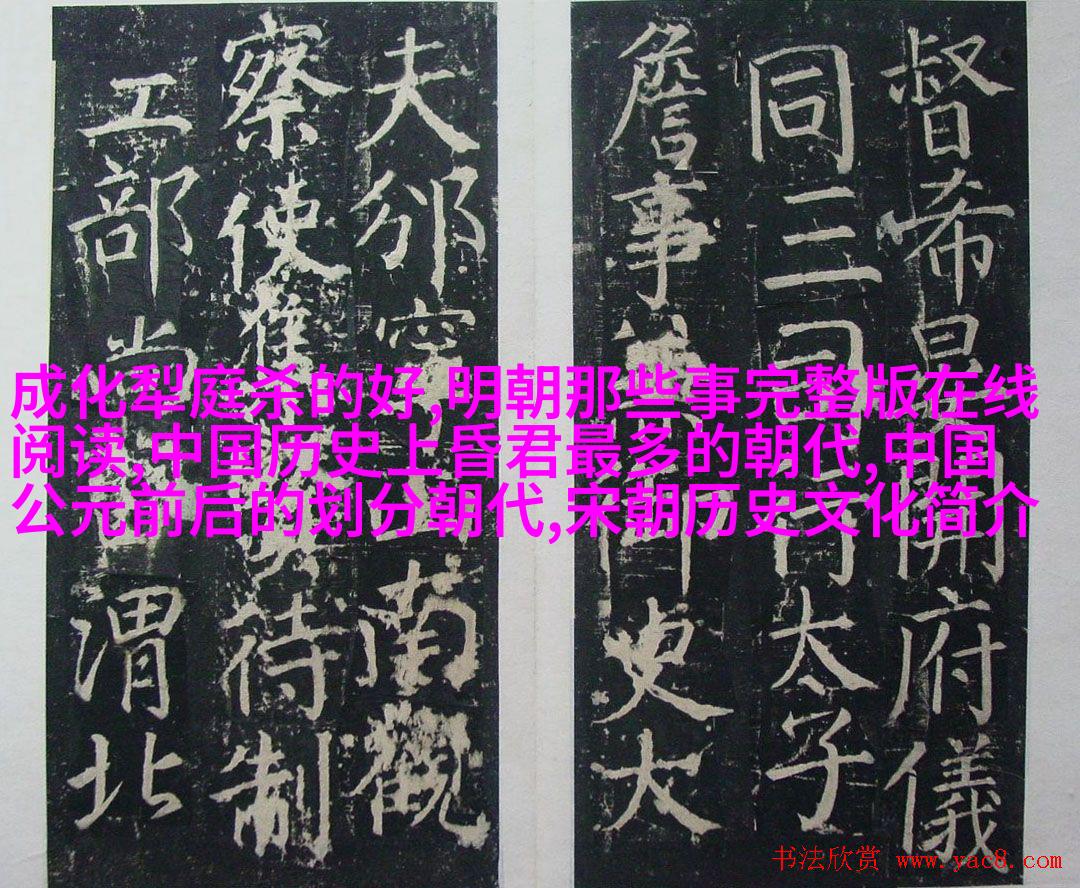 督希開府儀
同三司太子
詹事史大
夫邠寧南觀
察使待制
工部尚渭北
成化犁庭杀的好,明朝那些事完整版在线
阅读,中国历史上昏君最多的朝代,中国
公元前后的划分朝代,宋朝历史文化简介
书法欣赏 www.yac8.com